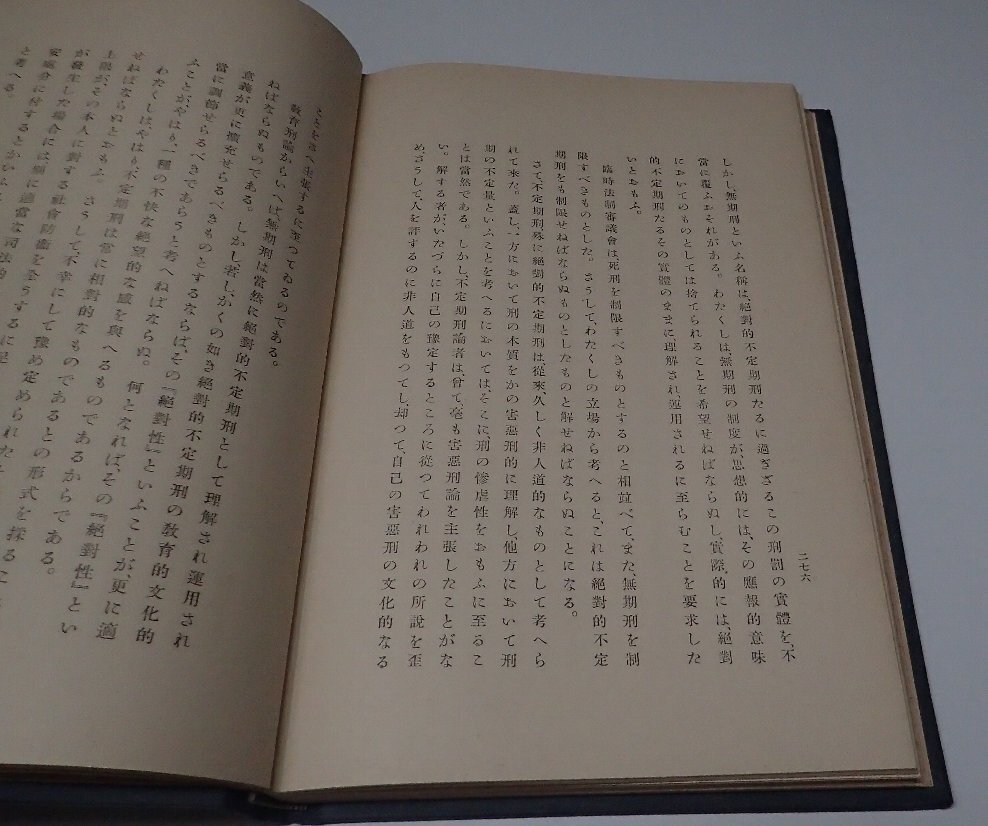 二七六
しかし、無期刑といふ名稱は、絕對的不定期刑たるに過ぎざるこの刑罰の實體を、不
當に覆ふおそれがある。わたくしは、無期刑の制度が、思想的には、その應報的意味
においてのものとしては捨てられることを希望せねばならぬし、實際的には、絕對
的不定期刑たるその實體のままに理解され、運用されるに至らむことを要求した
いとおもふ。
臨時法制審議會は、死刑を制限すべきものとするのと相竝べて、また、無期刑を制
限すべきものとした。さうして、わたくしの立場から考へると、これは絕對的不定
期刑をも制限せねばならぬものとしたものと解せねばならぬことになる。
さて、不定期刑殊に絕對的不定期刑は、從來、久しく非人道的なものとして考へら
れて來た。蓋し、一方において刑の本質をかの害惡刑的に理解し、他方において刑
期の不定量といふことを考へるにおいては、そこに、刑の慘虐性をおもふに至るこ
とは當然である。しかし、不定期刑論者は、曾て、毫も害惡刑論を主張したことがな
い。解する者が、いたづらに自己の豫定するところに從つてわれわれの所說を歪
め、さうして、人を評するのに非人道をもつてし、却つて、自己の害惡刑の文化的なる
ことをさへ主張するに至つてゐるのである。
敎育刑論からいへば、無期刑は當然に絕對的不定期刑として理解され運用され
ねばならぬものである。しかし、若し、かくの如き絕對的不定期刑の敎育的文化的
意義が更に擴充せらるべきものとするならば、その『絕對性』といふことが、更に適
當に調節せらるべきであらうと考へねばならぬ。何となれば、その『絕對性』とい
ふことが、やはり、一種の不快な絕望的な感を與へるものであるからである。
わたくしはやはり不定期刑は常に相對的なものであるとの形式を採るこ
せねばならぬとおもふ。さうして、不幸にして豫め定められた
上限が、その本人に對する社會防衞を全うするに足
が發生した場合には、別に適當な司法的
安處分に付するとかいふ
と考へる。